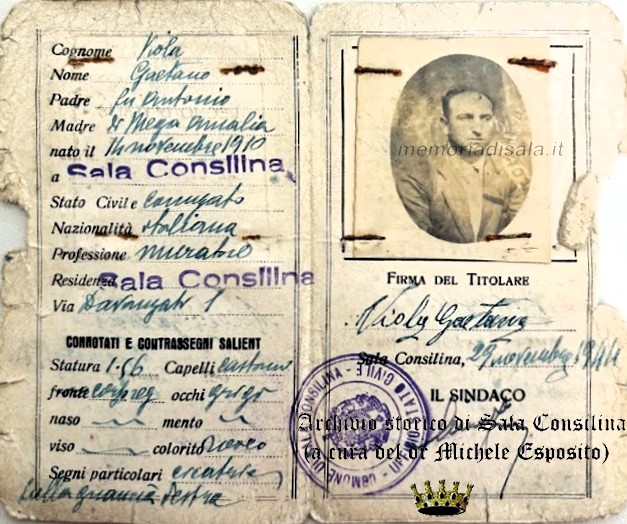 Cognome Viola
Nome Gaetano
Padre fu Antonio
Madre di Mega Amalia
nato il 14 novembre 1910
a Sala Consilina
Stato Civile coniugato
Nazionalità italiana
Professione muratore
Residenza Sala Consilina
Via
CONNOTATI E CONTRASSEGNI SALIENT
Statura 1.56 Capelli castani
fronte occhi grigi
naso mento
viso colorito roseo
Segni particolari cicatrice
sulla guancia destra
memoriadisala.it
FIRMA DEL TITOLARE
Viola Gaetano
Sala Consilina, 29 novembre 1944
IL SINDACO
COMUNE DI SALA CONSILINA - STATO CIVILE
Archivio storico di Sala Consilina
(a cura del dr Michele Esposito)